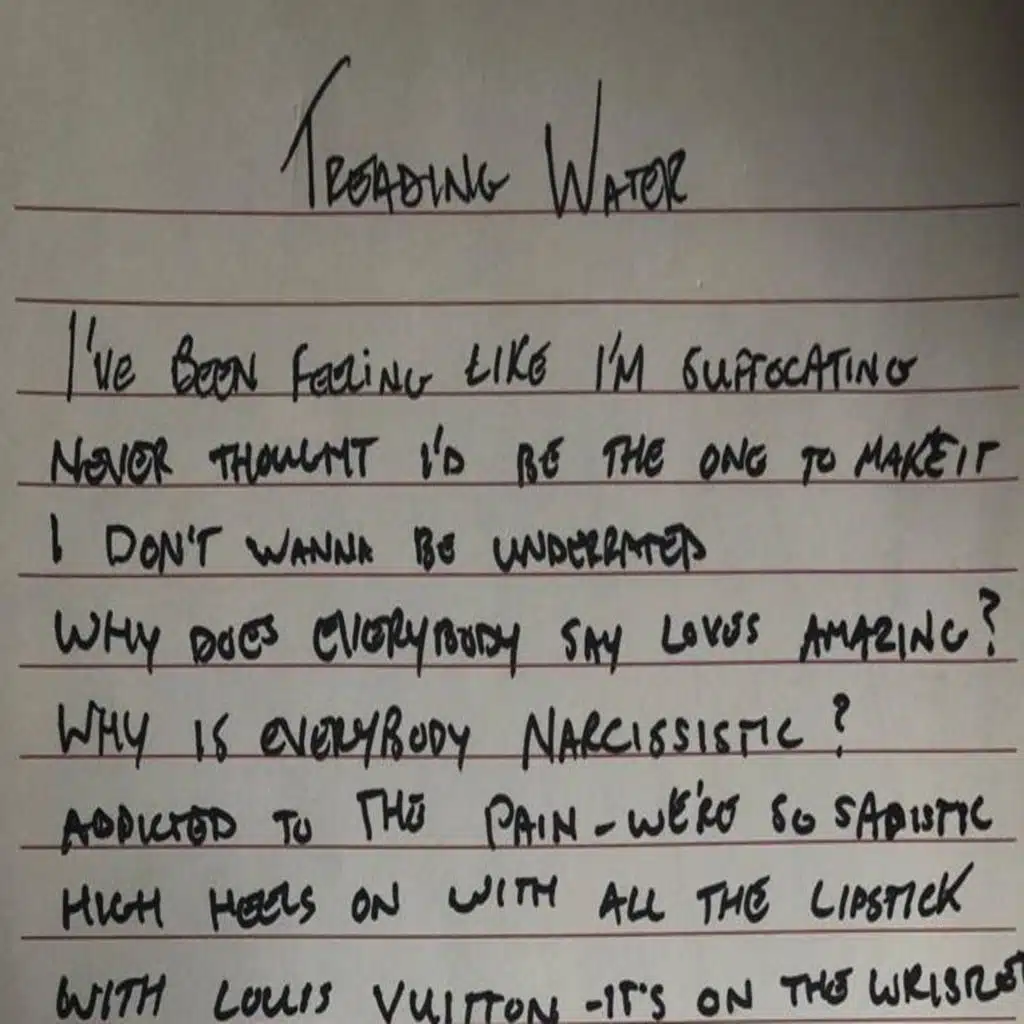 TREADING WATER
I'VE BEEN FEELING LIKE I'M SUFFOCATING
NEVER THOUGHT I'D BE THE ONE TO MAKE IT
I DON'T WANNA BE UNDERRATED
WHY DOES EVERYBODY SAY LOVES AMAZING?
WHY IS EVERYBODY NARCISSISTIC?
ADDICTED TO THE PAIN - WE'RE SO SADISTIC
HIGH HEELS ON WITH ALL THE LIPSTICK
WITH LOUIS VUITTON - IT'S ON THE